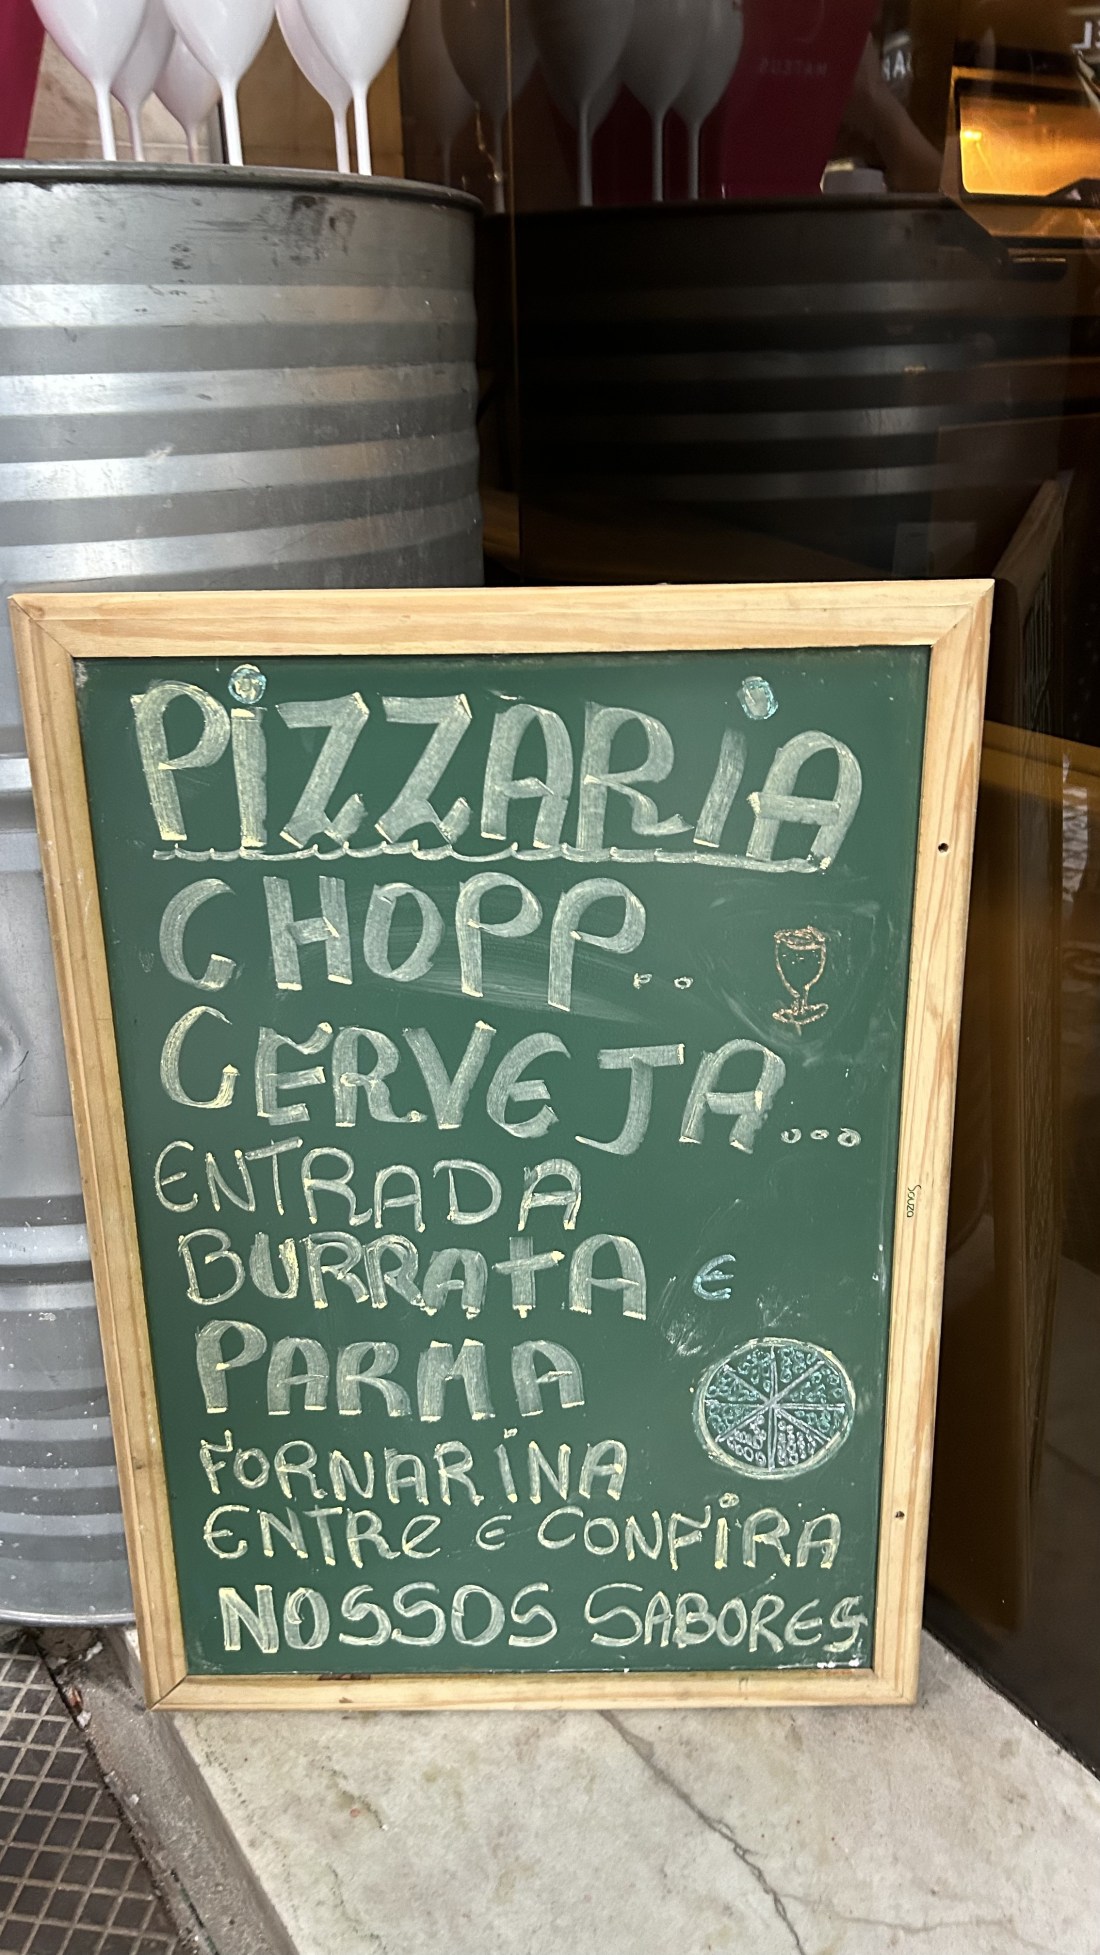 MATEUS
PiZZARiA
CHOPP..
CERVEJA...
ENTRADA
BURRATA E
PARMA
FORNARiNA
ENTRe E CONFiRA
NOSSOS SABORES
SOUZA